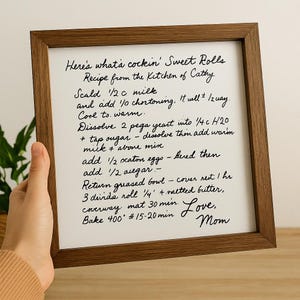 Here's what's cookin' Sweet Rolls
Recipe from the Kitchen of Cathy
Scald 1/2 c milk
and add 1/0 chortoning. 11 well + 1/2 way
Cool to warm.
Dissolve 2 pegs yeast into 1/4 c H20
+ tap sugar - dissolve tham add warm
milk + above mix
add 1/2 xaton eggs - fired then
add 1/2 aegar -
Return greased bowl - cover ret 1 hr
3 divida roll 1/4' + nelted butter,
coverway mat 30 min
Bake 400° # 15-20 min
Love,
Mom